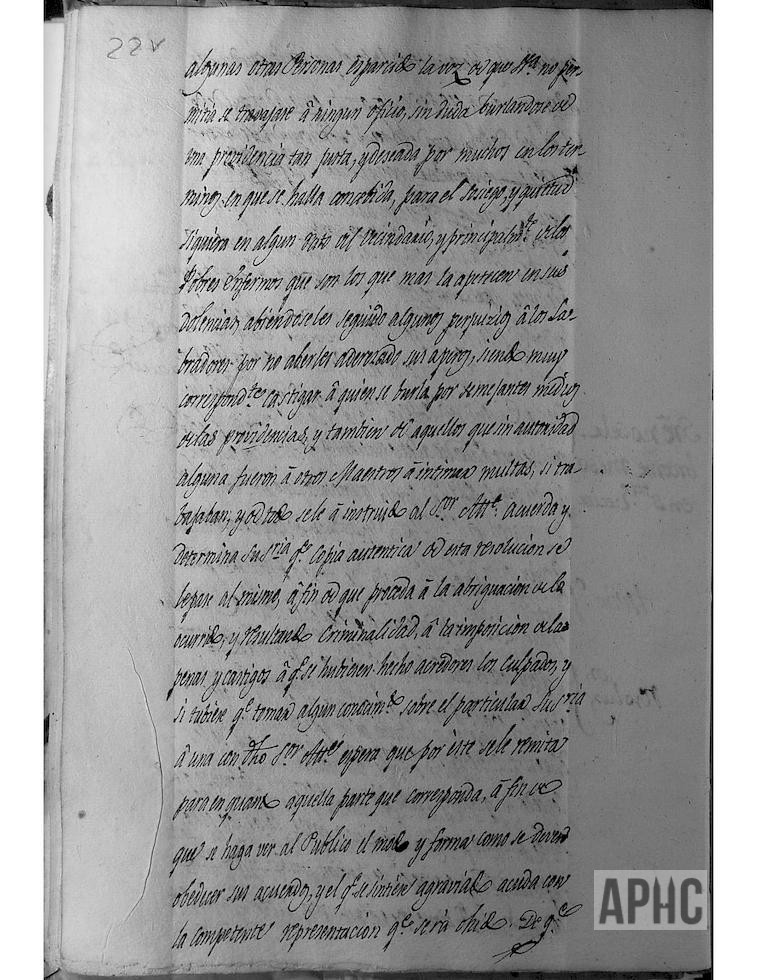 22v
algunas otras Personas esparcido la voz de que Sria no per-
mitia se travajare â ningun oficio, sin duda burlandose de
una providencia tan justa, y deseada por muchos en los ter-
minos en que se halla concevida, para el sosiego, y quietud
siquiera en algun rato del Vecindario, y principalmte. de los
Pobres Enfermos que son los que mas la apetecen en sus
dolencias, abiendoseles seguido algunos perjuizios â los La-
bradores por no aberles aderezado sus aperos, siendo muy
correspondte. castigar â quien se burla por semejantes medios
de las providencias, y tambien de aquellos que sin autoridad
alguna fueron â otros Maestros â intimar multas, si tra-
bajaban; y de todo se le â instruido al Sor. Alle. acuerda y
determina Su Sria qe. copia autentica de esta resolucion se
le pase al mismo, â fin de que proceda â la abriguacion de lo
ocurrido, y resultando Criminalidad, â la imposicion de las
penas y castigos â qe. se hubiesen hecho acredores los Culpados, y
si tubiere qe. tomar algun conocimto. sobre el particular Su Sria
â una con dho Sor. Alle. espera que por este se le remita
para en quanto aquella parte que corresponda, â fin de
que se haga ver al Publico el modo y forma como se deven
obedecer sus acuerdos, y el qe. se sintiere agraviado acuda con
la competente representacion qe. será ohido. De qe.
APHC